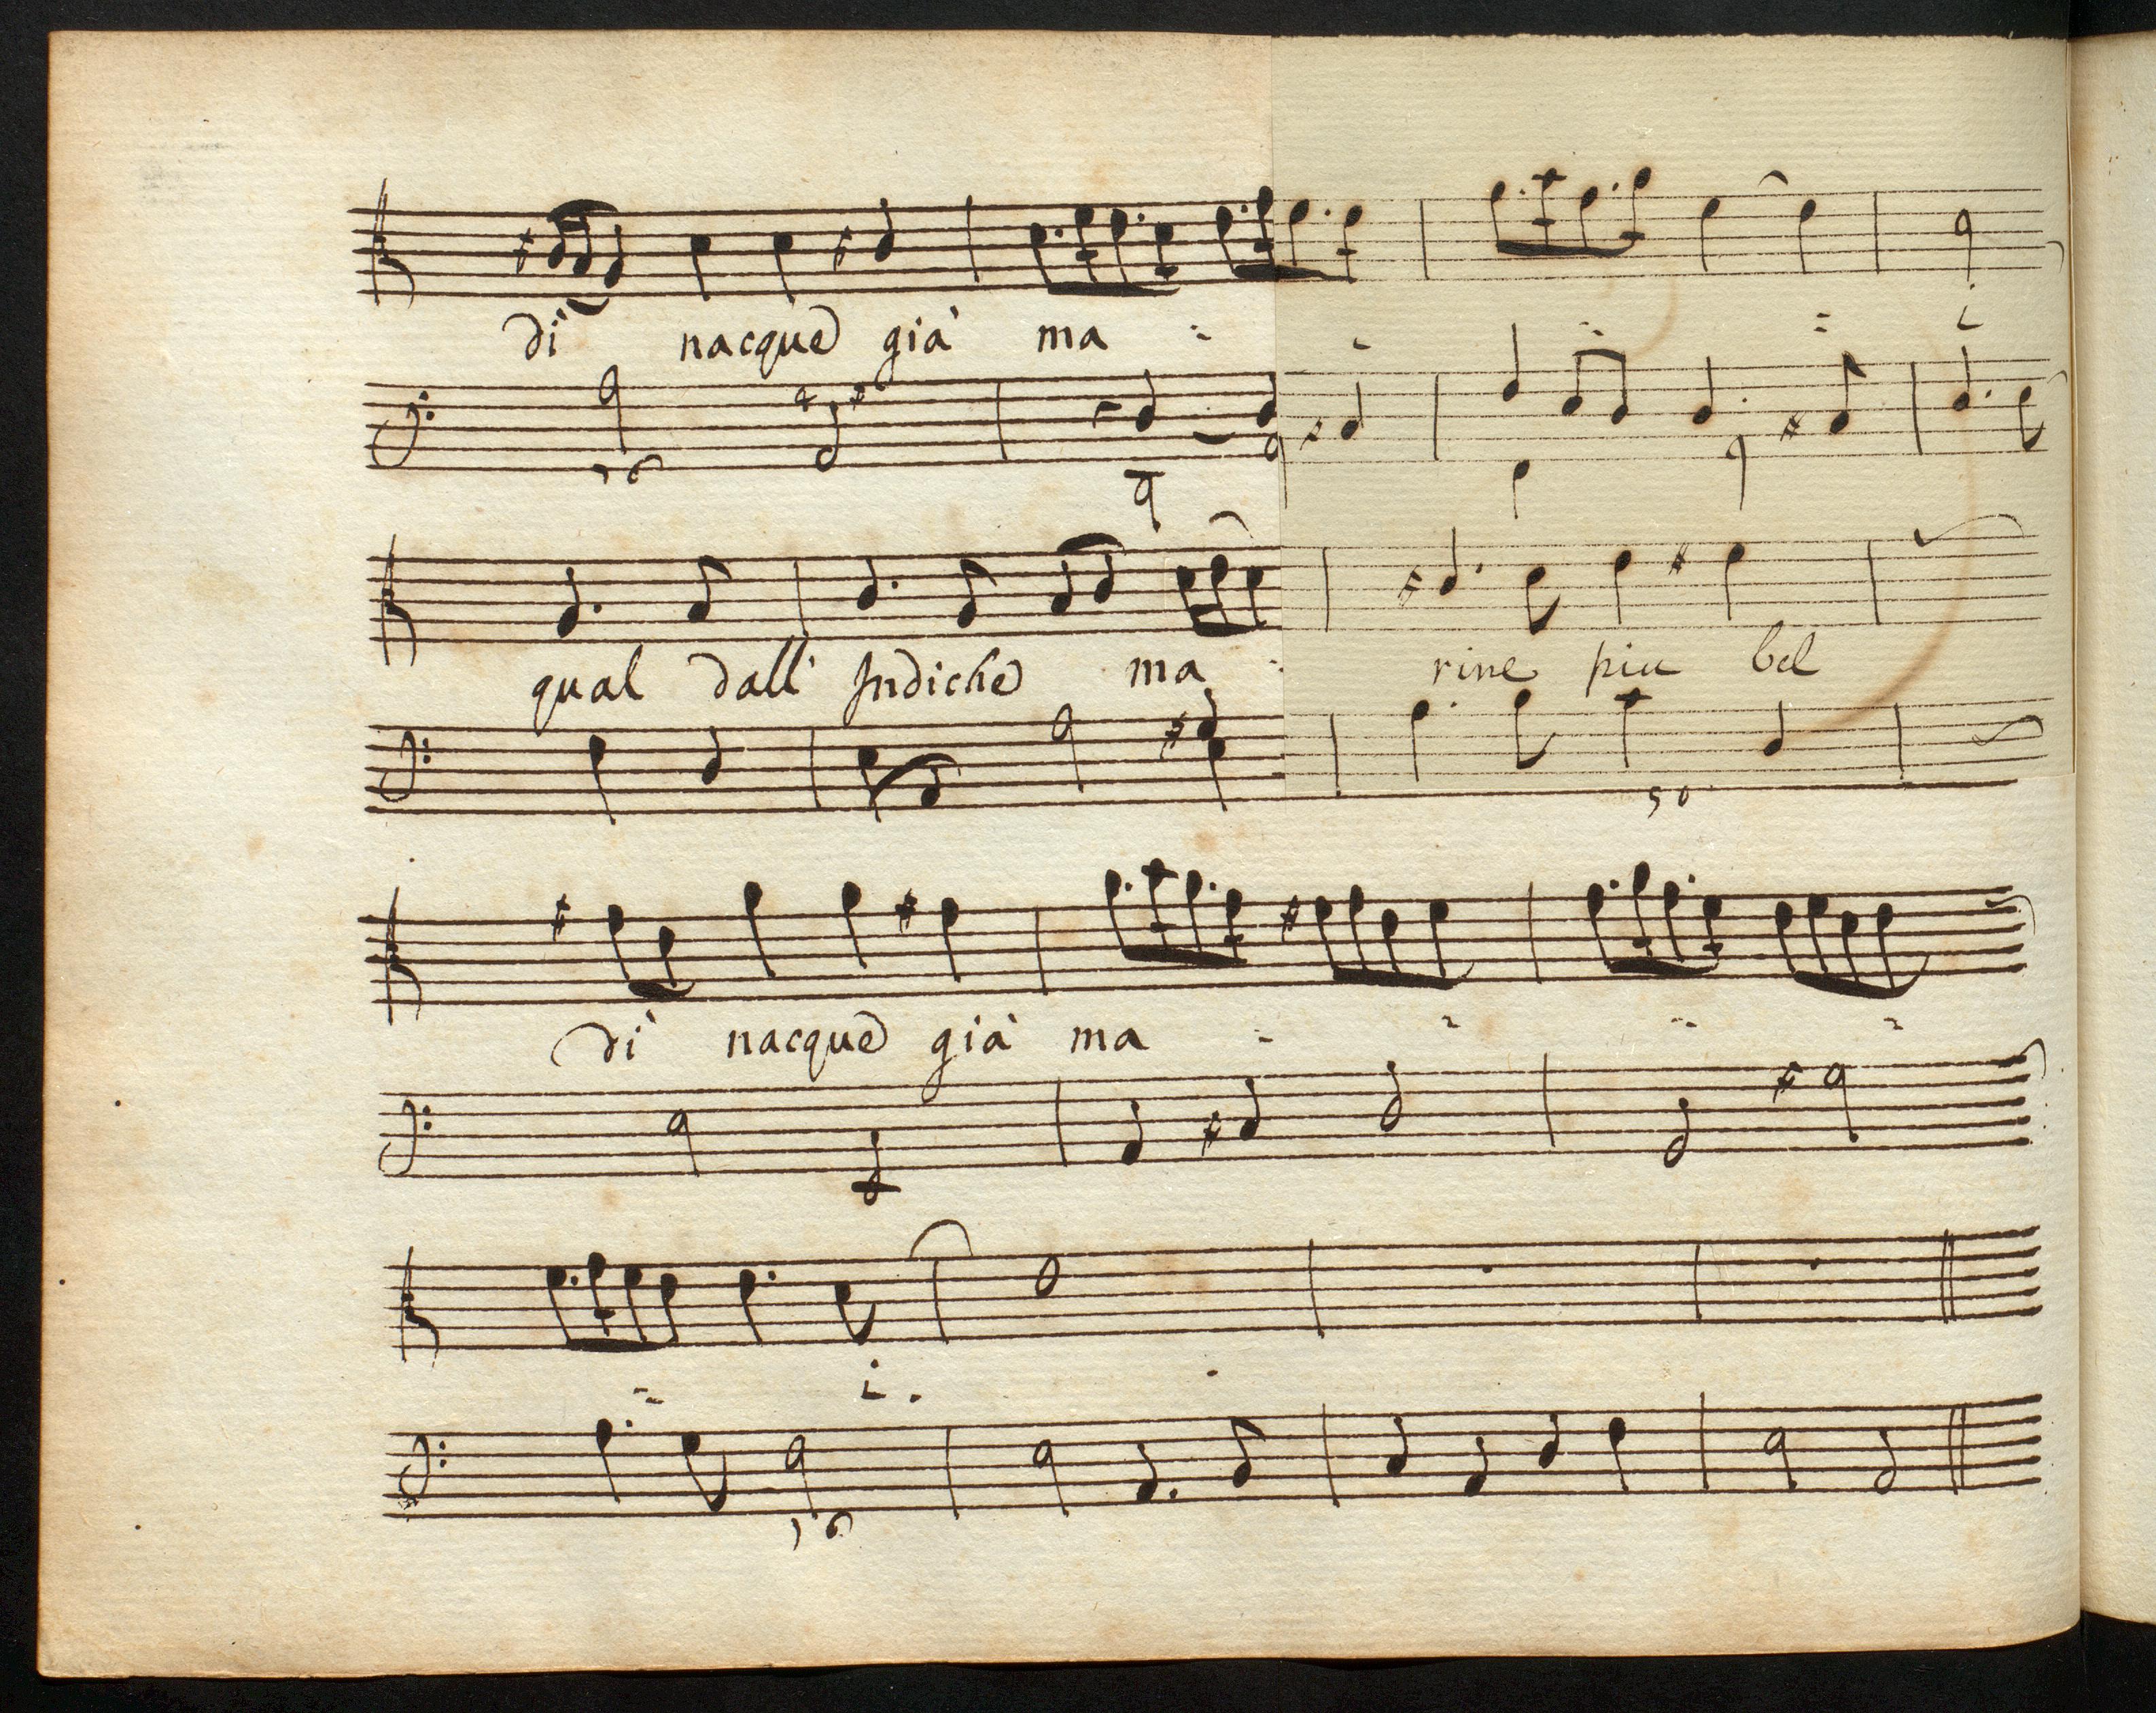 di nacque già ma - - - - i
qual dall' Indiche ma - rine piu bel
50
di nacque già ma - - - -
- i. -